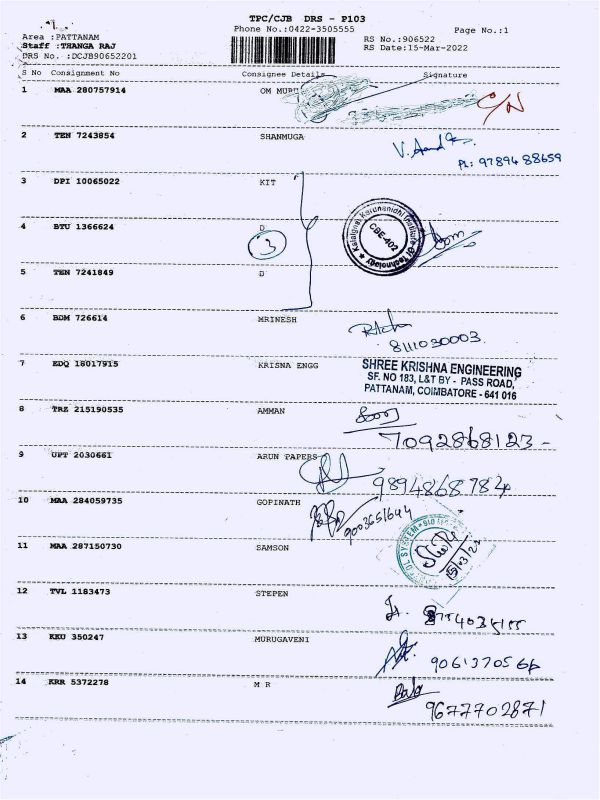 TPC/CJB DRS - P103
Area :PATTANAM Phone No.:0422-3505555 Page No.:1
Staff :THANGA RAJ RS No.:906522
DRS No. :DCJB90652201 RS Date:15-Mar-2022
S No Consignment No Consignee Details Signature
1 MAA 280757914 OM MURU C/N
2 TEN 7243854 SHANMUGA
Ph: 97894 88659
3 DPI 10065022 KIT
Kalaignar Karunanidhi Institute Of Technology
CBE-402
4 BTU 1366624 D
3
5 TEN 7241849 D
6 BDM 726614 MRINESH
8111030003
7 EDQ 18017915 KRISNA ENGG
SHREE KRISHNA ENGINEERING
SF. NO 183, L&T BY - PASS ROAD,
PATTANAM, COIMBATORE - 641 016
8 TRZ 215190535 AMMAN
7092868123 -
9 UPT 2030661 ARUN PAPERS
9894868784
10 MAA 284059735 GOPINATH
9003651644
11 MAA 287150730 SAMSON
12 TVL 1183473 STEPEN
13 KKU 350247 MURUGAVENI
9061370566
14 KRR 5372278 M R
Bala
9677702871